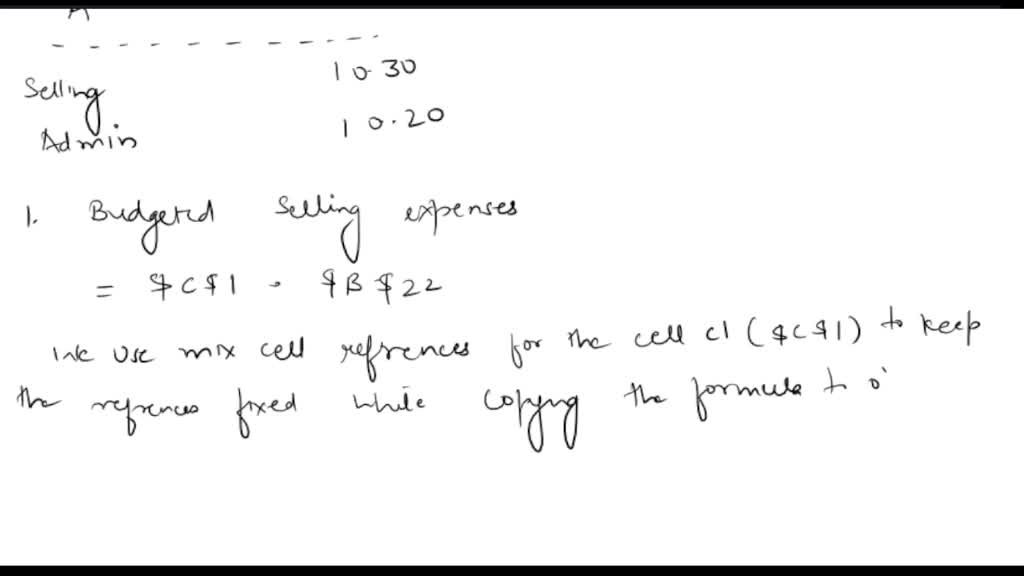 A
Selling 10.30
Admin 10.20
1. Budgeted Selling expenses
= $C$1 · $B$22
We use mix cell refrences for the cell c1 ($C$1) to keep
the refrences fixed while copying the formula to o